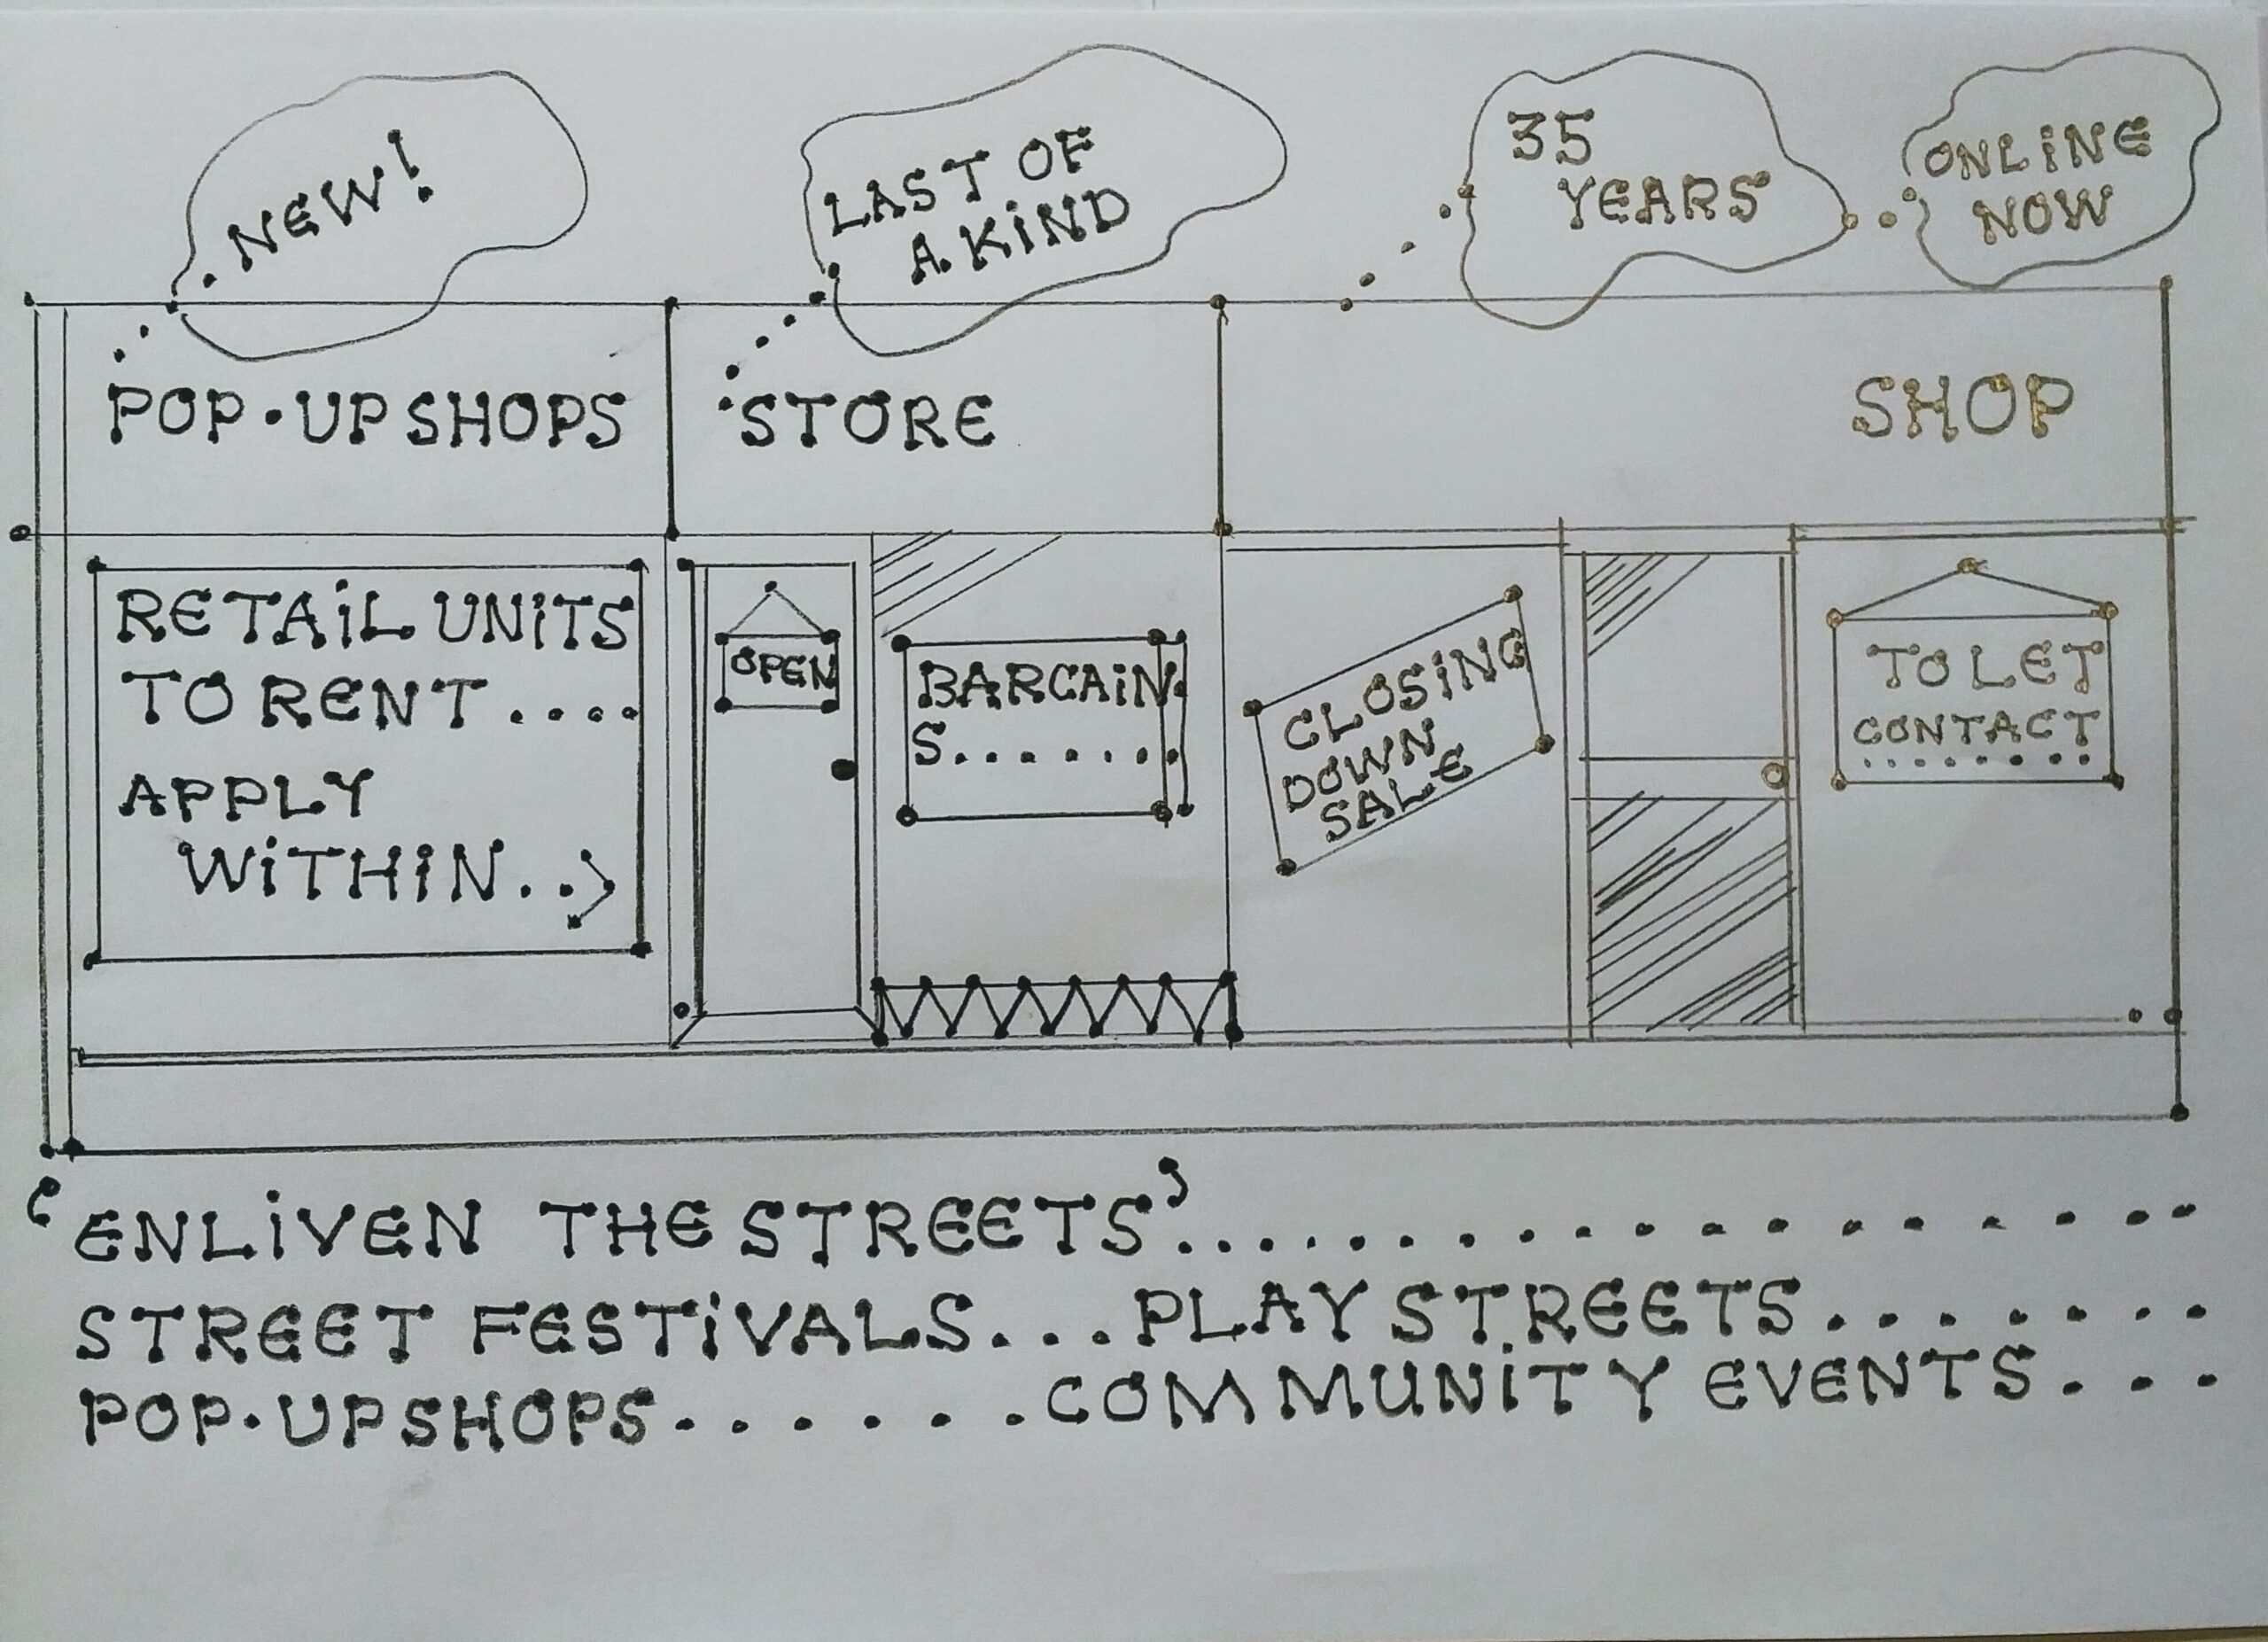 NEW!
LAST OF
A KIND
35
YEARS
ONLINE
NOW
POP-UP SHOPS
STORE
SHOP
RETAIL UNITS
TO RENT....
APPLY
WITHIN..>
OPEN
BARGAIN
S.......
CLOSING
DOWN
SALE
TO LET
CONTACT
........
'ENLIVEN THE STREETS'.................
STREET FESTIVALS...PLAY STREETS.......
POP-UP SHOPS......COMMUNITY EVENTS...